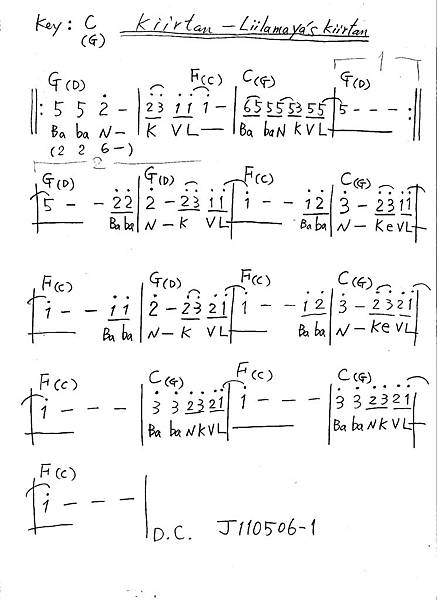 Key: C Kiirtan – Liilamaya's kiirtan
(G)
1
G(D) F(C) C(G) G(D)
||: 5 5 2̇ – | 2̇3̇ 1̇1̇ 1̇ – | 65 55 53 55 | 5 – – – :||
Ba ba N – K VL — Ba baN K VL
(2 2 6 –)
2
G(D) G(D) F(C) C(G)
| 5 – – 2̇2̇ | 2̇ – 2̇3̇ 1̇1̇ | 1̇ – – 1̇2̇ | 3̇ – 2̇3̇ 1̇1̇ |
Ba ba N – K VL Ba ba N – Ke VL
F(C) G(D) F(C) C(G)
| 1̇ – – 1̇1̇ | 2̇ – 2̇3̇ 2̇1̇ | 1̇ – – 1̇2̇ | 3̇ – 2̇3̇ 2̇1̇ |
Ba ba N – K VL Ba ba N – Ke VL
F(C) C(G) F(C) C(G)
| 1̇ – – – | 3̇ 3̇ 2̇3̇ 2̇1̇ | 1̇ – – – | 3̇ 3̇ 2̇3̇ 2̇1̇ |
Ba ba N K VL Ba ba N K VL
F(C)
| 1̇ – – – |
D.C. J110506-1